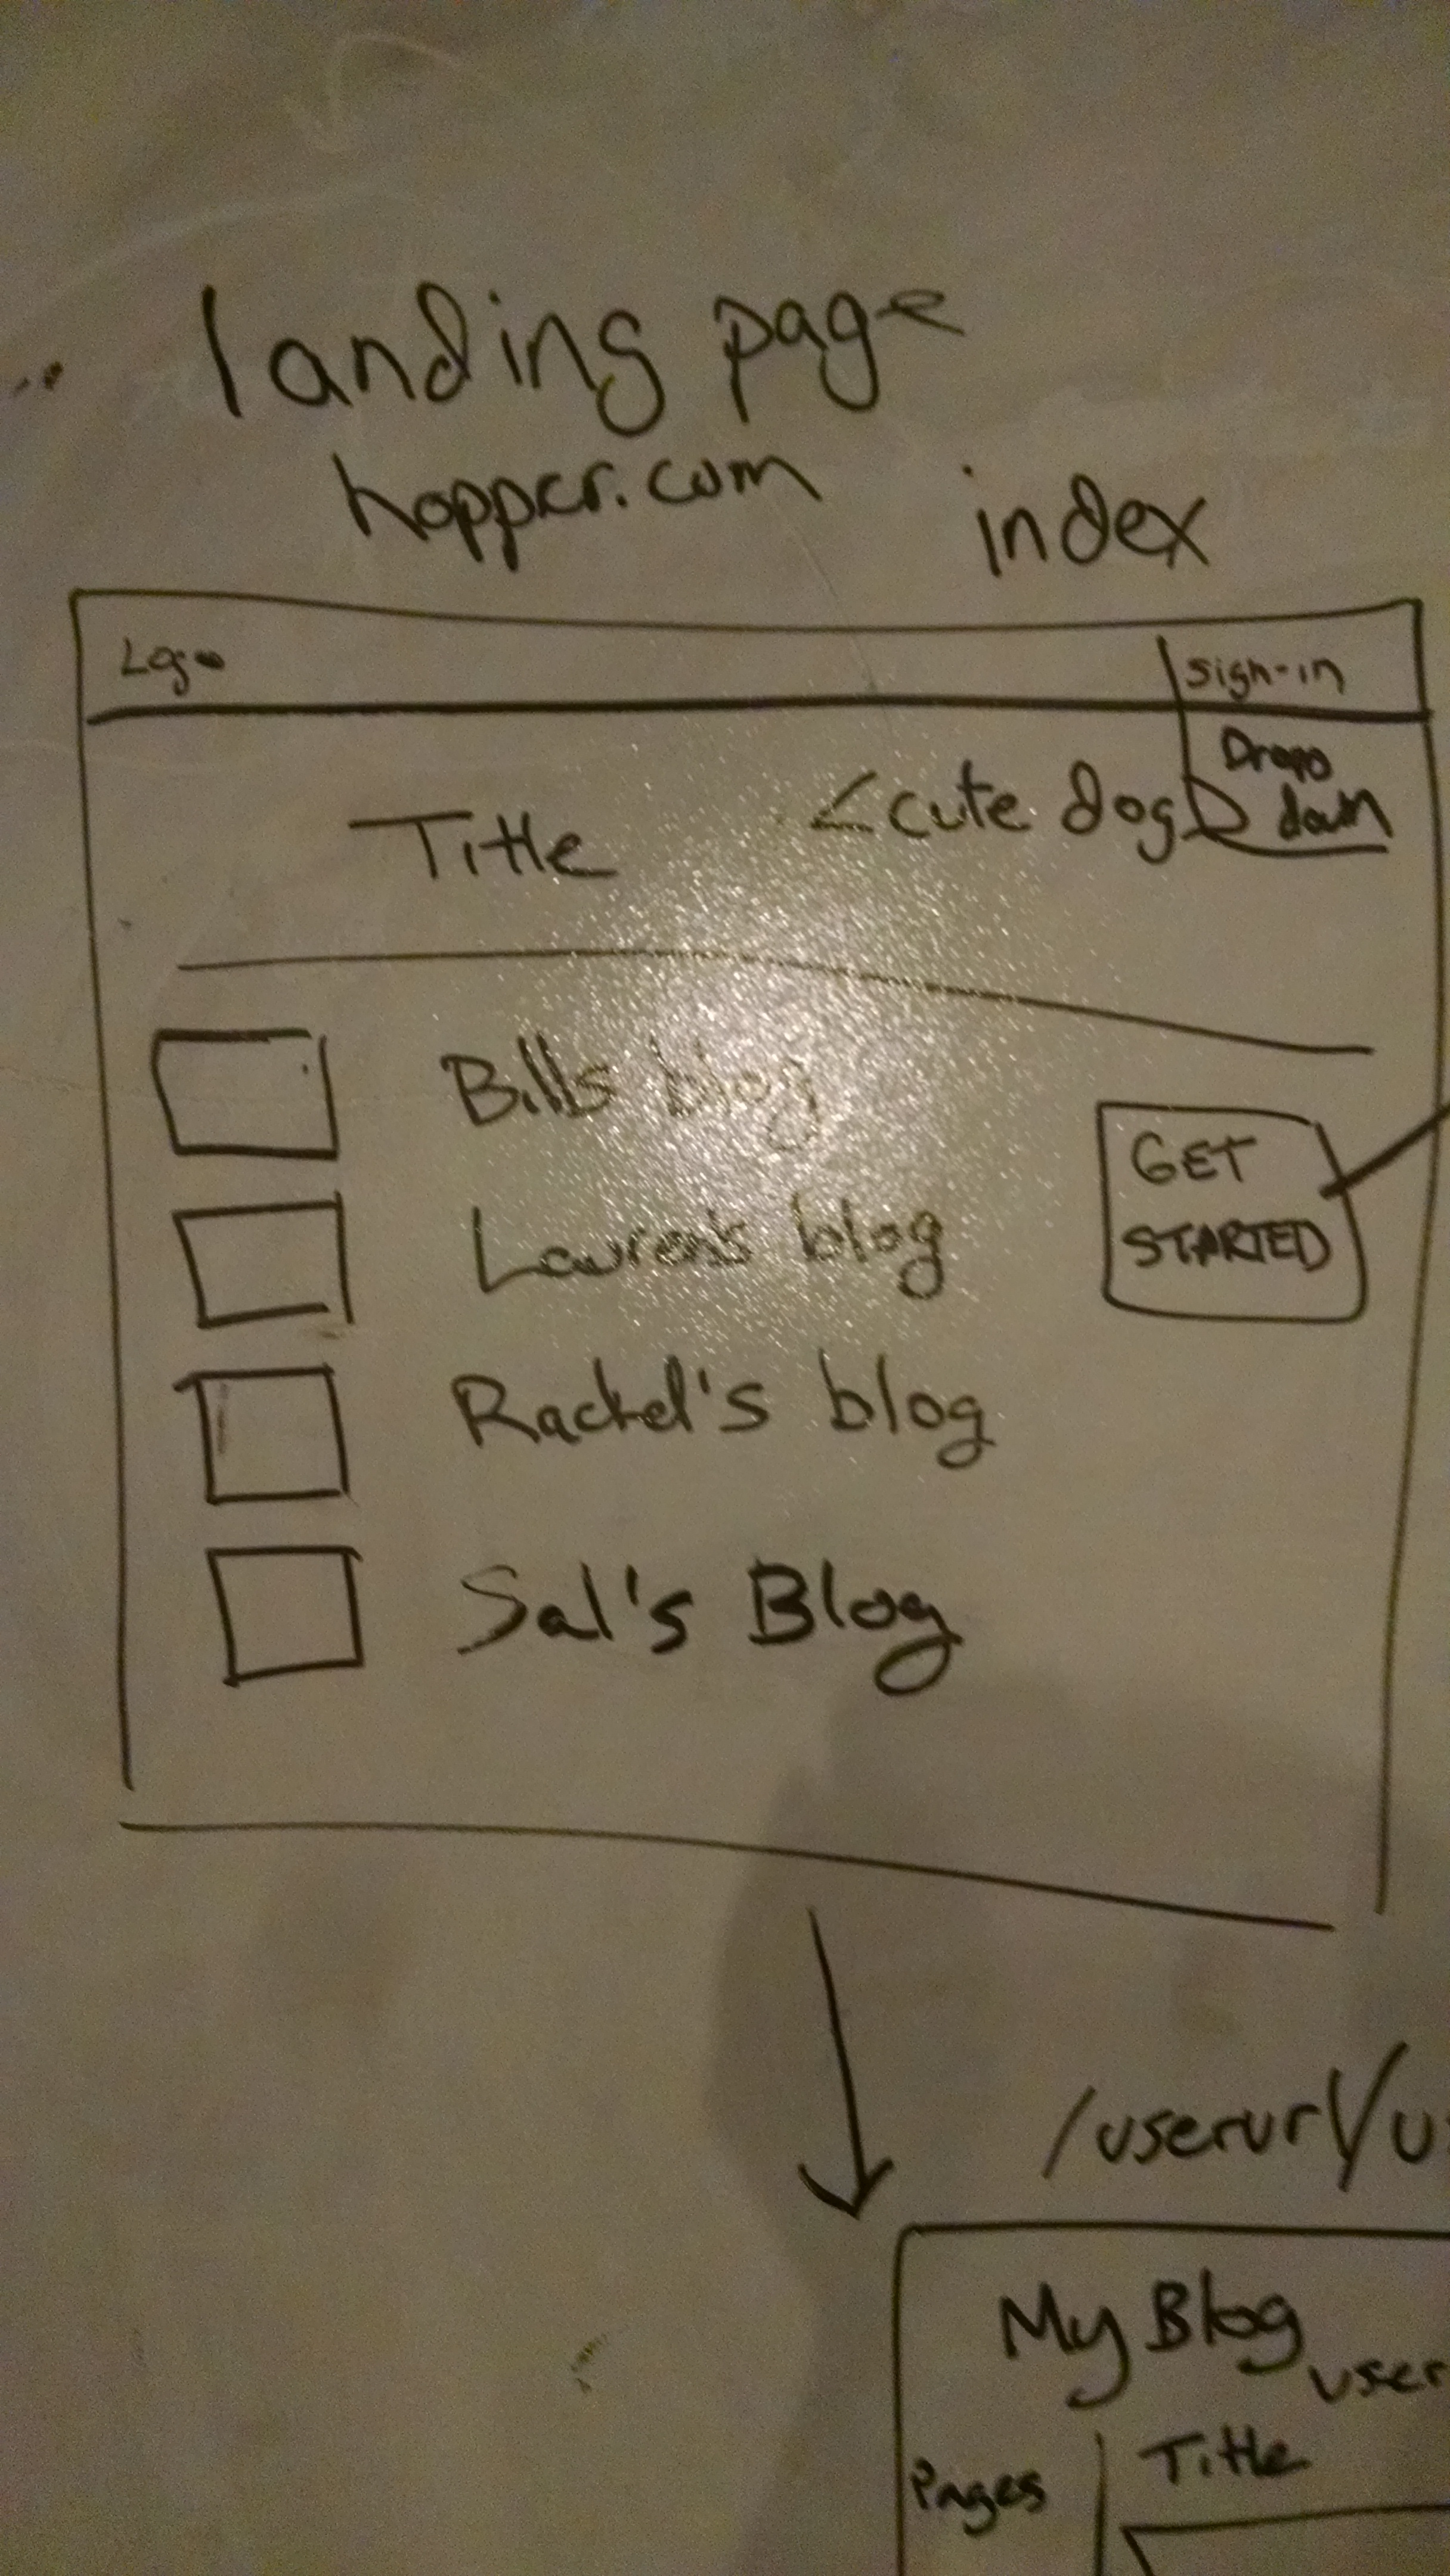 landing page
hopper.com index
Logo sign-in
Drop down
Title <cute dog>
Bills blog
GET
STARTED
Lauren's blog
Rachel's blog
Sal's Blog
/userurl/u
My Blog
user
Pages Title